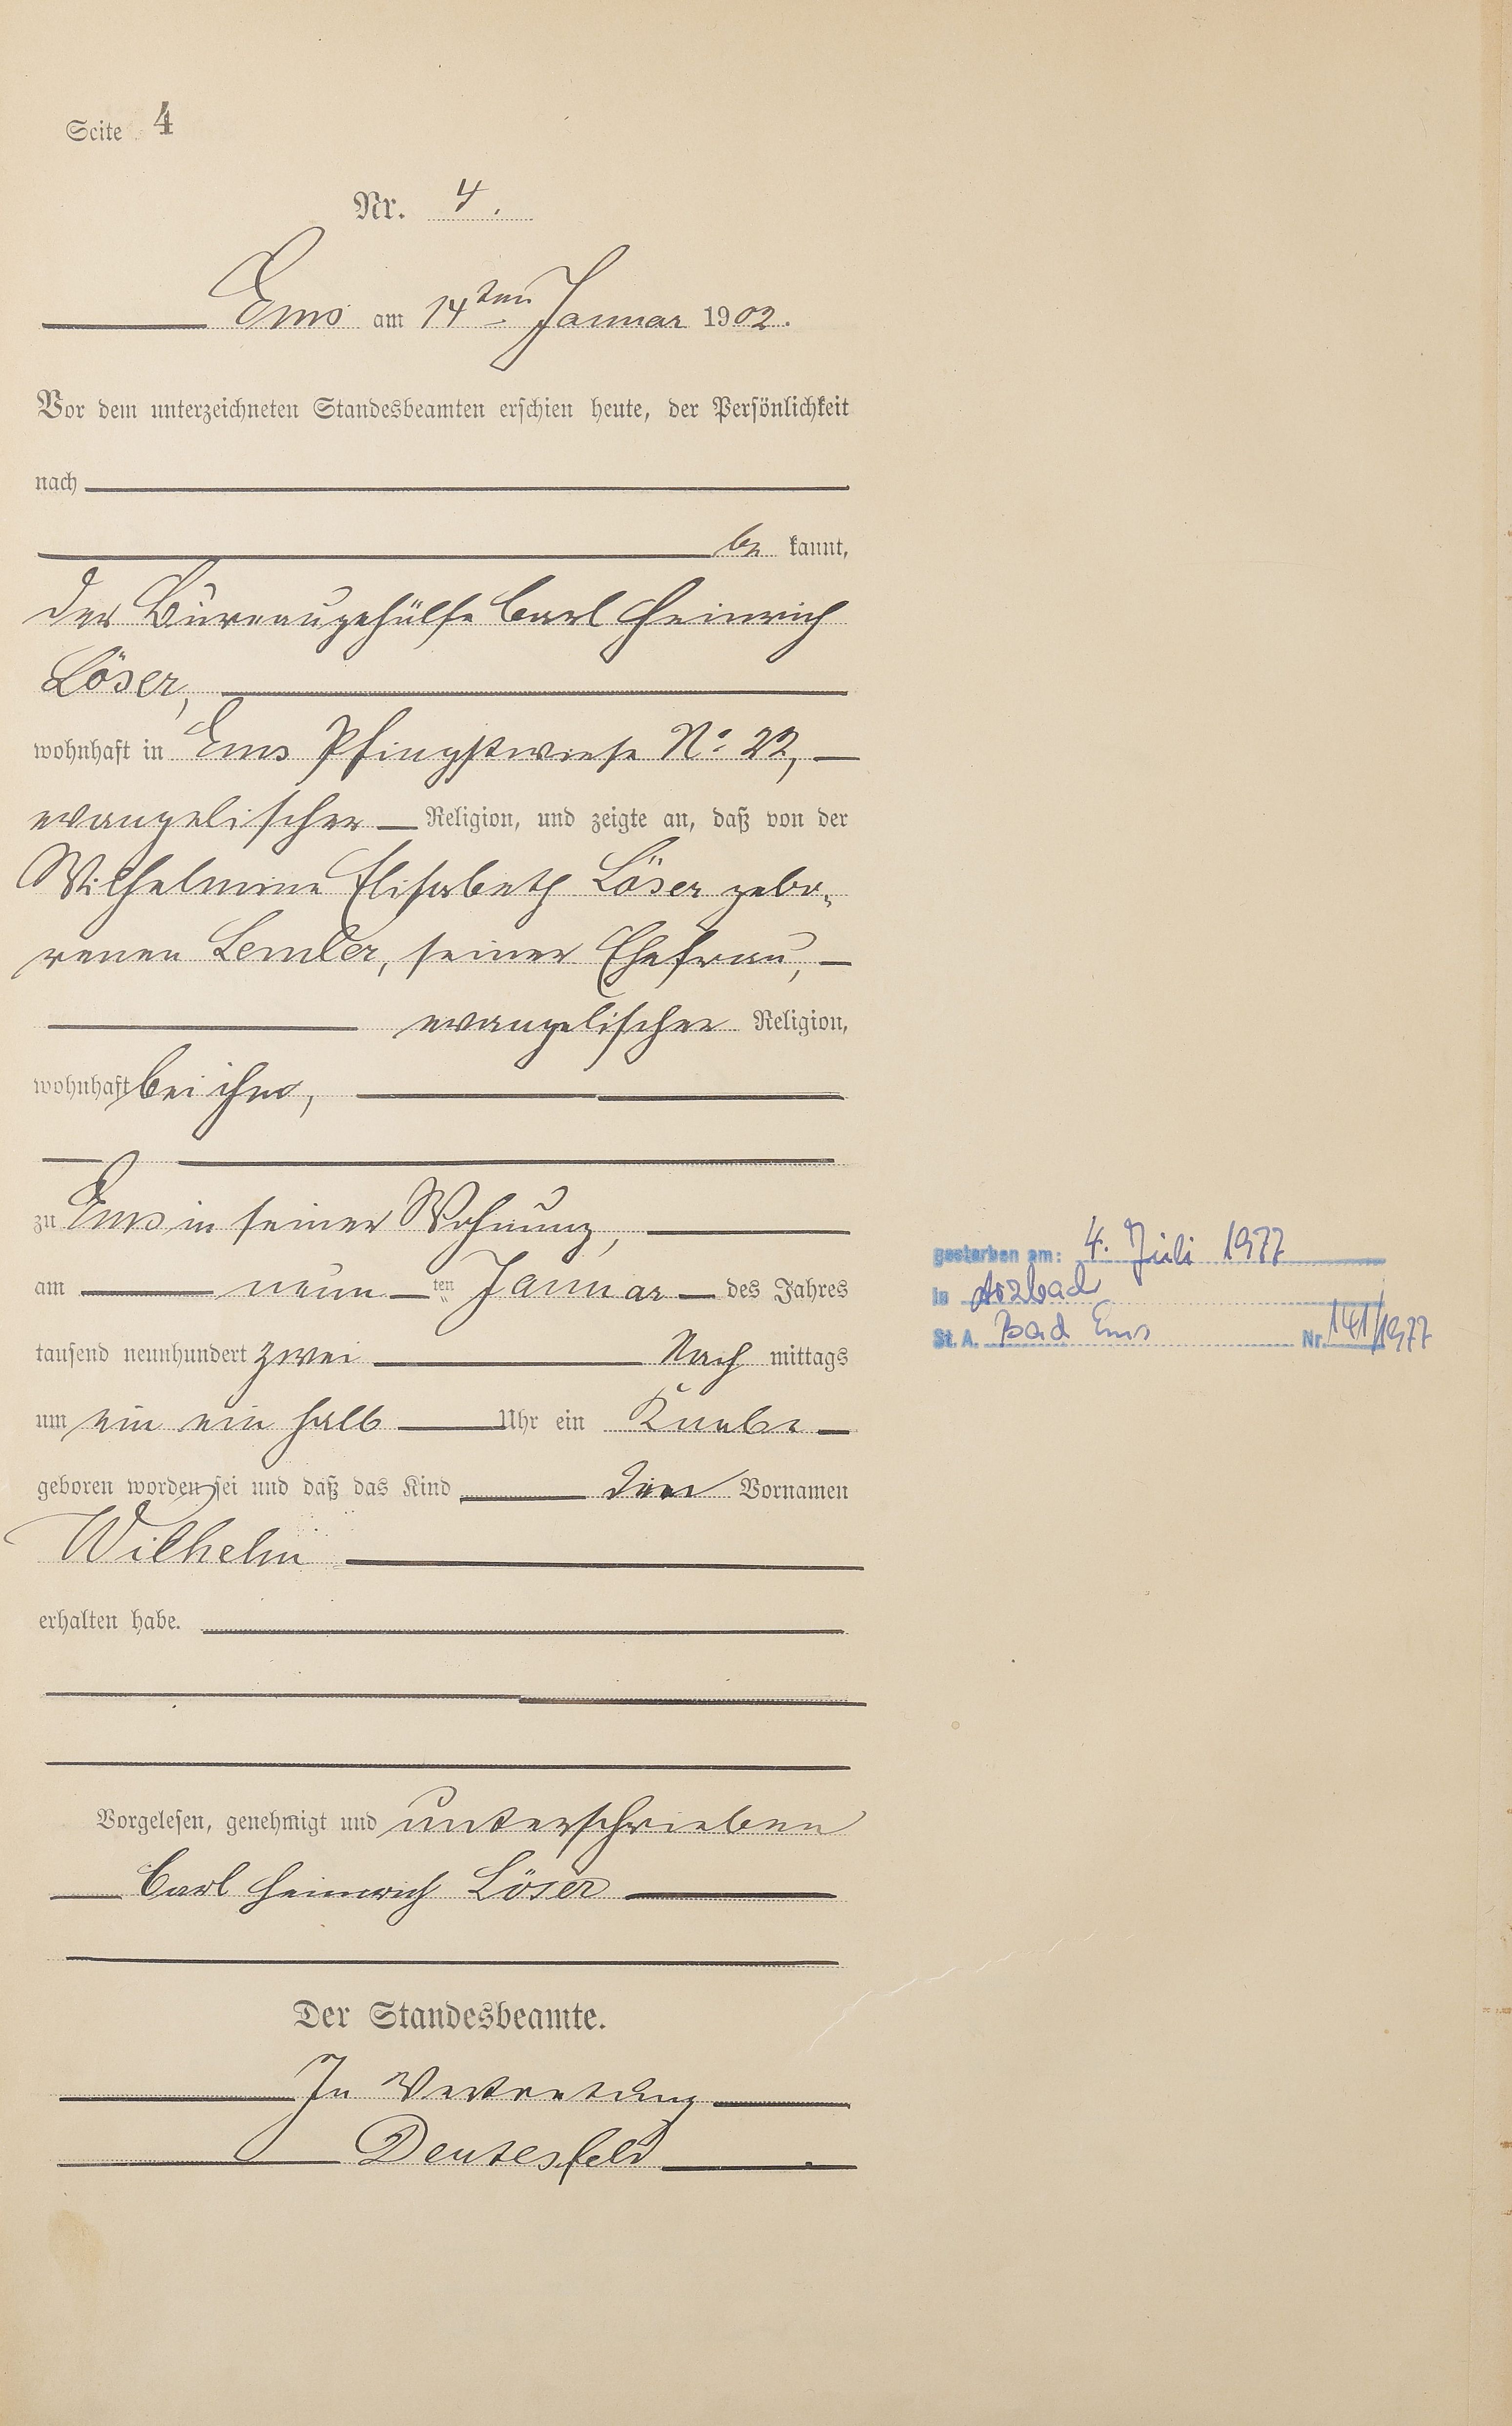 Seite 4
Nr. 4.
Ems am 14ten Januar 1902.
Vor dem unterzeichneten Standesbeamten erschien heute, der Persönlichkeit
nach
be kannt,
der Büreaugehülfe Carl Heinrich
Löser,
wohnhaft in Ems Pfingstwiese No. 22,
evangelischer Religion, und zeigte an, daß von der
Wilhelmine Elisabeth Löser gebo-
renen Lemler, seiner Ehefrau,
evangelischer Religion,
wohnhaft bei ihm,
zu Ems in seiner Wohnung,
am neun ten Januar des Jahres
tausend neunhundert zwei Nach mittags
um ein ein halb Uhr ein Knabe
geboren worden sei und daß das Kind den Vornamen
Wilhelm
erhalten habe.
Vorgelesen, genehmigt und unterschrieben
Carl Heinrich Löser
Der Standesbeamte.
In Vertretung
Deutesfeld
gestorben am: 4. Juli 1977
in Arzbach
St. A. Bad Ems Nr. 141/1977